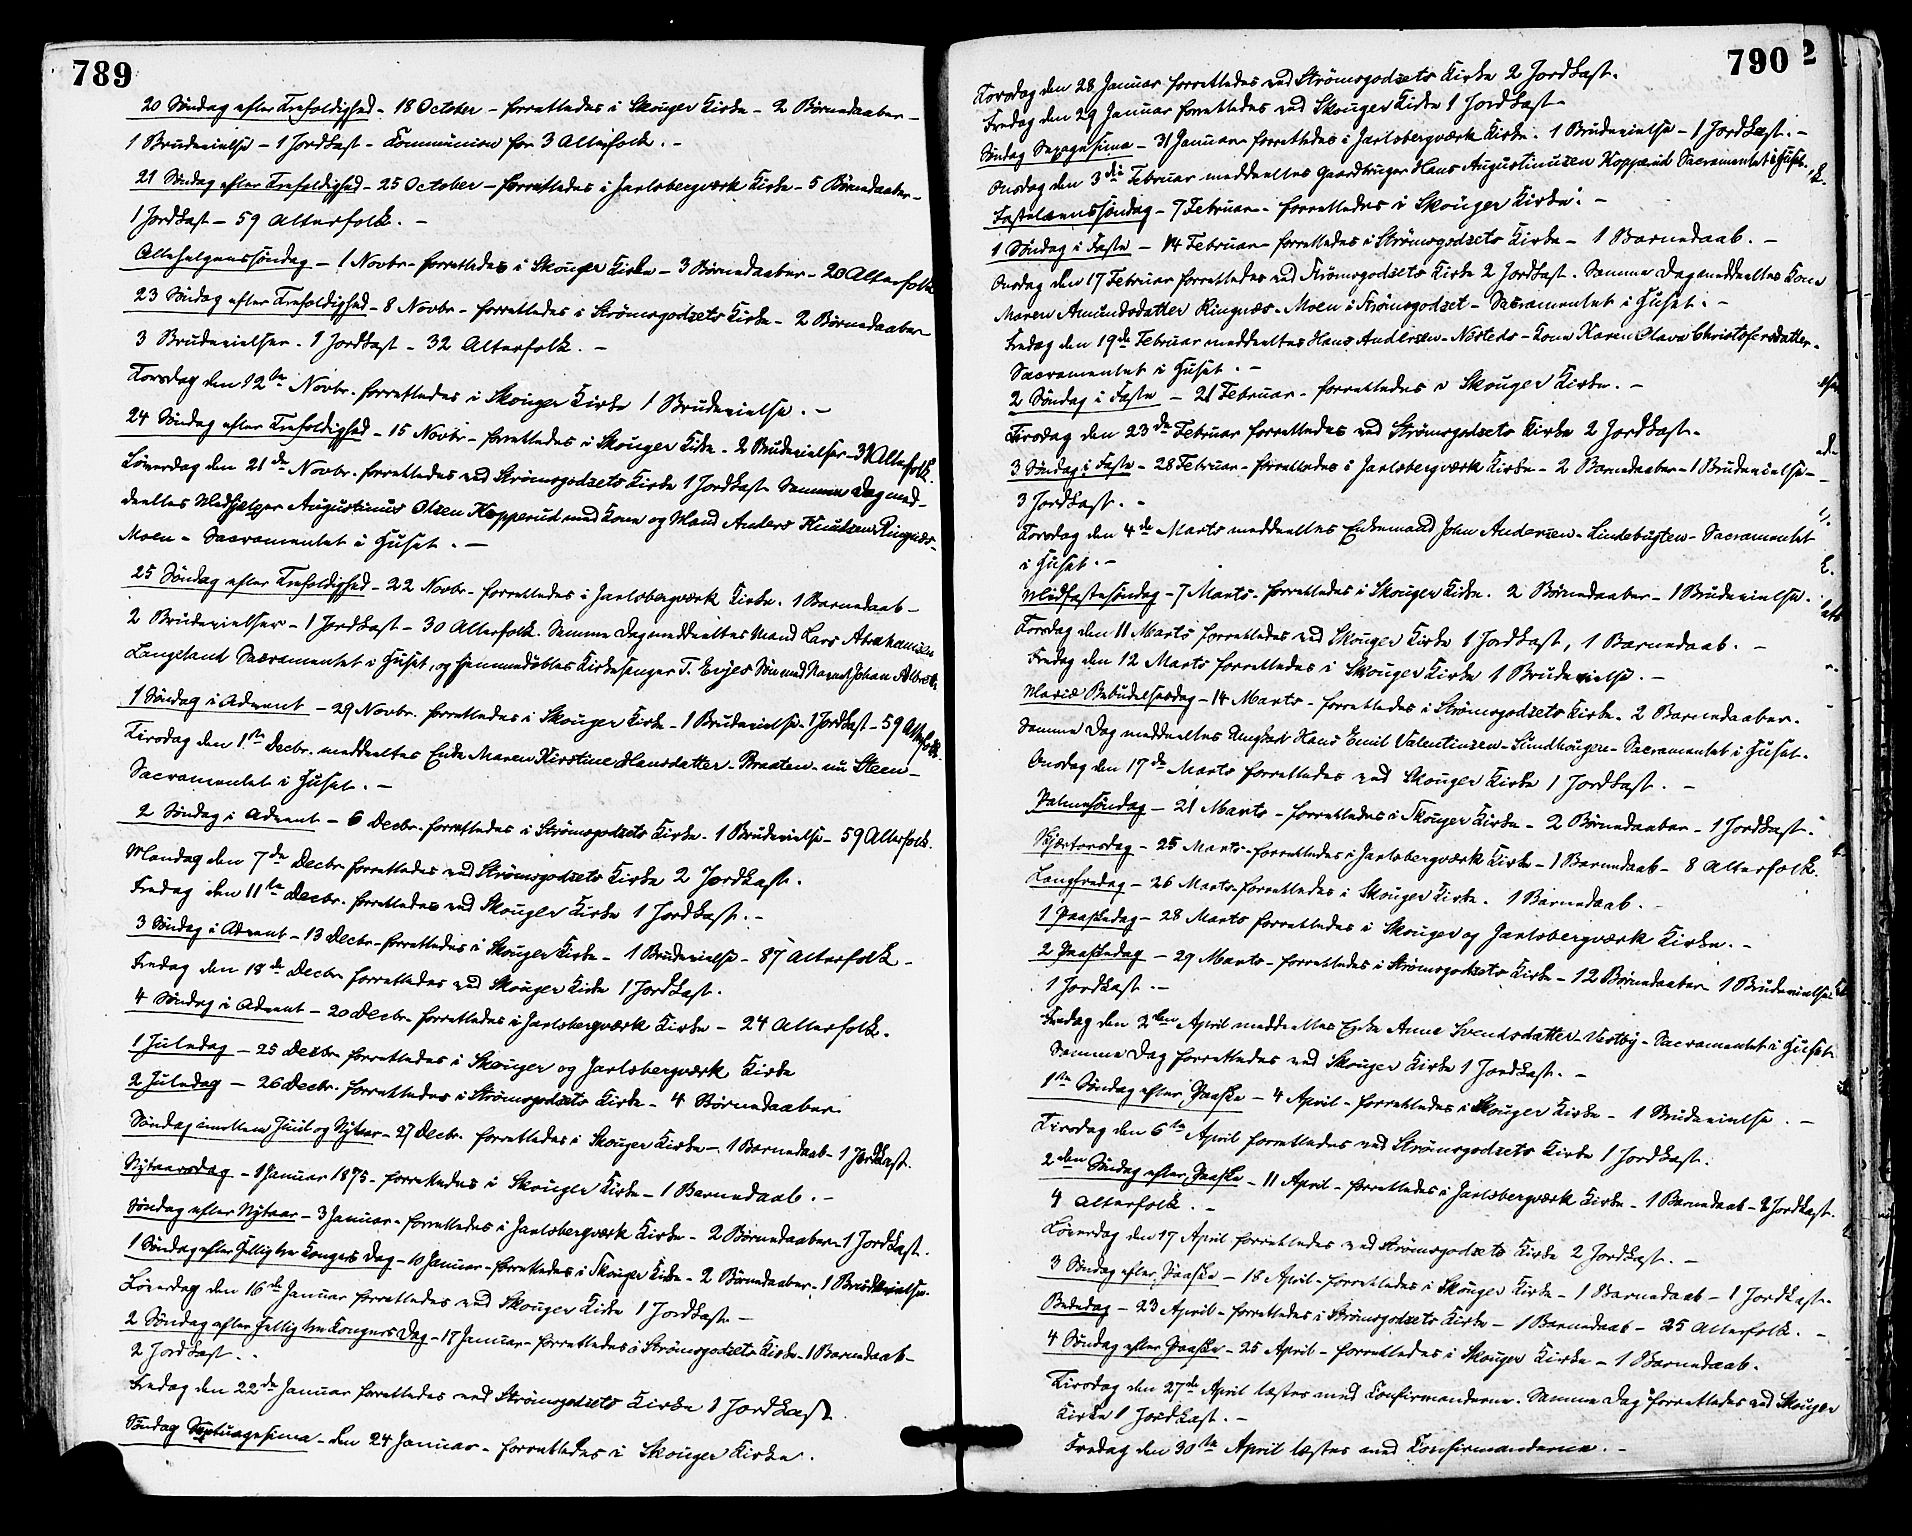 789
20 Søndag efter Trefoldighed - 18 October - forrettedes i Skouger Kirke - 2 Børnedaaber -
1 Brudevielse - 1 Jordkast - Communion for 3 Alterfolk. -
21 Søndag efter Trefoldighed - 25 October - forrettedes i Jarlsbergværk Kirke - 5 Børnedaaber -
1 Jordkast - 59 Alterfolk. -
Allehelgenssøndag - 1 Novbr - forrettedes i Skouger Kirke - 3 Børnedaaber - 20 Alterfolk
23 Søndag efter Trefoldighed - 8 Novbr - forrettedes i Strømsgodsets Kirke - 2 Børnedaaber
3 Brudevielser - 1 Jordkast - 32 Alterfolk. -
Torsdag den 12te Novbr. forrettedes i Skouger Kirke 1 Brudevielse. -
24 Søndag efter Trefoldighed - 15 Novbr - forrettedes i Skouger Kirke - 2 Brudevielser - Alterfolk.
Løverdag den 21de Novbr. forrettedes ved Strømsgodsets Kirke 1 Jordkast Samme Dag med-
deeltes Medhjælper Augustinus Olsen Kopperud med Kone og Mand Anders Knudsen Ringnæs-
Moen - Sacramentet i Huset. -
25 Søndag efter Trefoldighed - 22 Novbr - forrettedes i Jarlsbergværk Kirke. 1 Barnedaab -
2 Brudevielser - 1 Jordkast - 30 Alterfolk. Samme Dag meddeeltes Mand Lars Abrahamsen
Langeland Sacramentet i Huset, og hjemmedøbtes Kirkesanger T. Evjes Søn med Navnet Johan
1 Søndag i Advent - 29 Novbr. forrettedes i Skouger Kirke - 1 Brudevielse - 1 Jordkast - 59 Alterfolk.
Tirsdag den 1ste Decbr. meddeeltes Enke Maren Kirstine Hansdatter - Braaten - nu Steen -
Sacramentet i Huset. -
2 Søndag i Advent - 6 Decbr. forrettedes i Strømsgodsets Kirke - 1 Brudevielse - 59 Alterfolk.
Mandag den 7de Decbr forrettedes ved Strømsgodsets Kirke 2 Jordkast.
Fredag den 11te Decbr. forrettedes ved Skouger Kirke 1 Jordkast. -
3 Søndag i Advent - 13 Decbr - forrettedes i Skouger Kirke - 1 Brudevielse - 87 Alterfolk -
Fredag den 18de Decbr forrettedes ved Skouger Kirke 1 Jordkast.
4 Søndag i Advent - 20 Decbr - forrettedes i Jarlsbergværk Kirke - 24 Alterfolk.
1 Juledag - 25 Decbr forrettedes i Skouger og Jarlsbergværk Kirke
2 Juledag - 26 Decbr. forrettedes i Strømsgodsets Kirke - 4 Børnedaaber
Søndag imellem Juul og Nytaar - 27 Decbr. forrettedes i Skouger Kirke - 1 Barnedaab - 1 Jordkast.
Nytaarsdag - 1 Januar 1875 - forrettedes i Skouger Kirke - 1 Barnedaab. -
Søndag efter Nytaar - 3 Januar - forrettedes i Jarlsbergværk Kirke - 2 Børnedaaber - 1 Jordkast.
1 Søndag efter Hellig tre Kongers Dag - 10 Januar - forrettedes i Skouger Kirke - 2 Børnedaaber - 1 Brudevielse.
Løverdag den 16de Januar forrettedes ved Skouger Kirke 1 Jordkast -
2 Søndag efter Hellig tre Kongers Dag - 17 Januar - forrettedes i Strømsgodsets Kirke - 1 Barnedaab -
2 Jordkast. -
Fredag den 22de Januar forrettedes ved Strømsgodsets Kirke 1 Jordkast
Søndag Septuagesima - den 24 Januar - forrettedes i Skouger Kirke.
790
Torsdag den 28 Januar forrettedes ved Strømsgodsets Kirke 2 Jordkast.
Fredag den 29 Januar forrettedes ved Skouger Kirke 1 Jordkast -
Søndag Sexagesima - 31 Januar - forrettedes i Jarlsbergværk Kirke. 1 Brudevielse - 1 Jordkast. -
Onsdag den 3die Februar meddeeltes Gaardbruger Hans Augustinusen Kopperud Sacramentet i Huset.
Fastelavnssøndag - 7 Februar - forrettedes i Skouger Kirke. -
1 Søndag i Faste - 14 Februar - forrettedes i Strømsgodsets Kirke - 1 Barnedaab. -
Onsdag den 17 Februar forrettedes ved Strømsgodsets Kirke 2 Jordkast. Samme Dag meddeeltes Kone
Maren Amundsdatter Ringnæs-Moen i Strømsgodset - Sacramentet i Huset. -
Fredag den 19de Februar meddeeltes Hans Andersen - Nøsteds - Kone Karen Olava Christofersdatter -
Sacramentet i Huset. -
2 Søndag i Faste - 21 Februar - forrettedes i Skouger Kirke. -
Tirsdag den 23de Februar forrettedes ved Strømsgodsets Kirke 2 Jordkast.
3 Søndag i Faste - 28 Februar - forrettedes i Jarlsbergværk Kirke - 2 Børnedaaber - 1 Brudevielse -
3 Jordkast. -
Torsdag den 4de Marts meddeeltes Enkemand John Andersen - Lindebugten - Sacramentet
i Huset. -
Midfastesøndag - 7 Marts - forrettedes i Skouger Kirke. 2 Børnedaaber - 1 Brudevielse.
Torsdag den 11 Marts forrettedes ved Skouger Kirke 1 Jordkast, 1 Barnedaab. -
Fredag den 12 Marts forrettedes i Skouger Kirke 1 Brudevielse. -
Mariæ Bebudelsesdag - 14 Marts - forrettedes i Strømsgodsets Kirke. 2 Børnedaaber.
Samme Dag meddeeltes Ungkarl Hans Emil Valentinsen - Sacramentet i Huset.
Onsdag den 17de Marts forrettedes ved Skouger Kirke 1 Jordkast. -
Palmesøndag - 21 Marts - forrettedes i Skouger Kirke - 2 Børnedaaber - 1 Jordkast.
Skjærtorsdag - 25 Marts - forrettedes i Jarlsbergværk Kirke - 1 Barnedaab - 8 Alterfolk.
Langfredag - 26 Marts - forrettedes i Skouger Kirke. 1 Barnedaab.
1 Paaskedag - 28 Marts forrettedes i Skouger og Jarlsbergværk Kirke. -
2 Paaskedag - 29 Marts - forrettedes i Strømsgodsets Kirke - 12 Børnedaaber 1 Brudevielse
1 Jordkast. -
Fredag den 2den April meddeeltes Enke Anne Svendsdatter - Vestby - Sacramentet i Huset
Samme Dag forrettedes ved Skouger Kirke 1 Jordkast. -
1ste Søndag efter Paaske - 4 April - forrettedes i Skouger Kirke - 1 Brudevielse. -
Tirsdag den 6te April forrettedes ved Strømsgodsets Kirke 1 Jordkast.
2den Søndag efter Paaske - 11 April - forrettedes i Jarlsbergværk Kirke - 1 Barnedaab - 2 Jordkast.
4 Alterfolk. -
Løverdag den 17 April forrettedes ved Strømsgodsets Kirke 2 Jordkast. -
3 Søndag efter Paaske - 18 April - forrettedes i Skouger Kirke - 1 Barnedaab - 1 Jordkast.
Bededag - 23 April - forrettedes i Strømsgodsets Kirke - 1 Barnedaab - 25 Alterfolk. -
4 Søndag efter Paaske - 25 April - forrettedes i Skouger Kirke - 1 Barnedaab.
Tirsdag den 27de April læstes med Konfirmanderne. Samme Dag forrettedes ved Skouger
Kirke 1 Jordkast. -
Fredag den 30te April læstes med Konfirmanderne. -